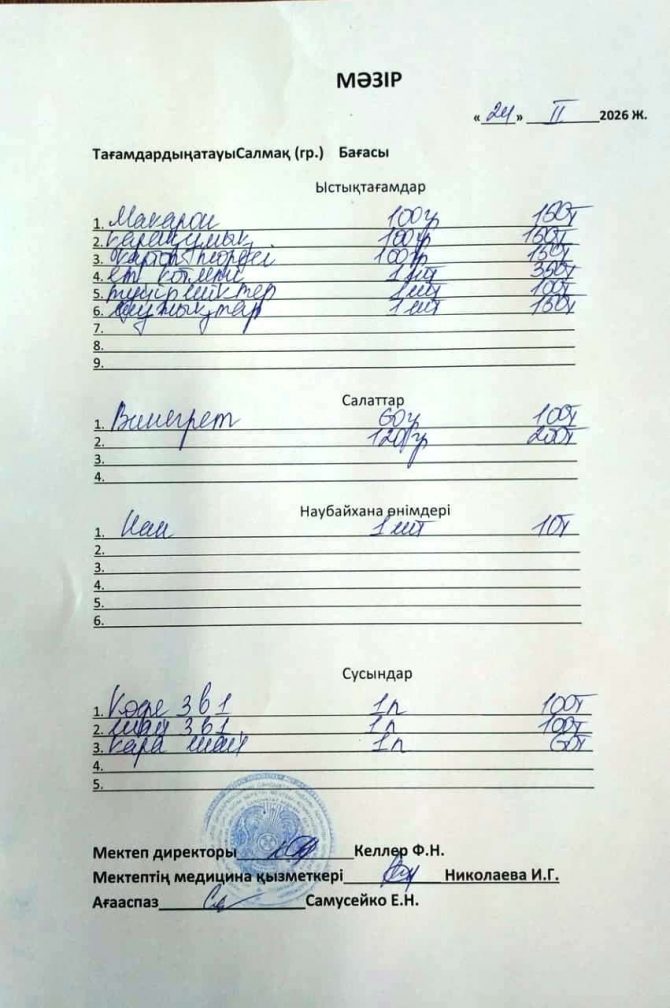 МӘЗІР
«24» II 2026 Ж.
ТағамдардыңатауыСалмақ (гр.) Бағасы
Ыстықтағамдар
1. Макарон 100гр 150т
2. қарақұмық 100гр 150т
3. Картоп пюресі 100гр 150т
4. ет котлеті 1шт 350т
5. түйіршіктер 1шт 100т
6. шұжықтар 1шт 150т
7.
8.
9.
Салаттар
1. Винегрет 60гр 100т
2. 120гр 200т
3.
4.
Наубайхана өнімдері
1. Нан 1шт 10т
2.
3.
4.
5.
6.
Сусындар
1. Кофе 3в1 1п 100т
2. шай 3в1 1п 100т
3. қара шай 1п 60т
4.
5.
Мектеп директоры Келлер Ф.Н.
Мектептің медицина қызметкері Николаева И.Г.
Ағааспаз Самусейко Е.Н.